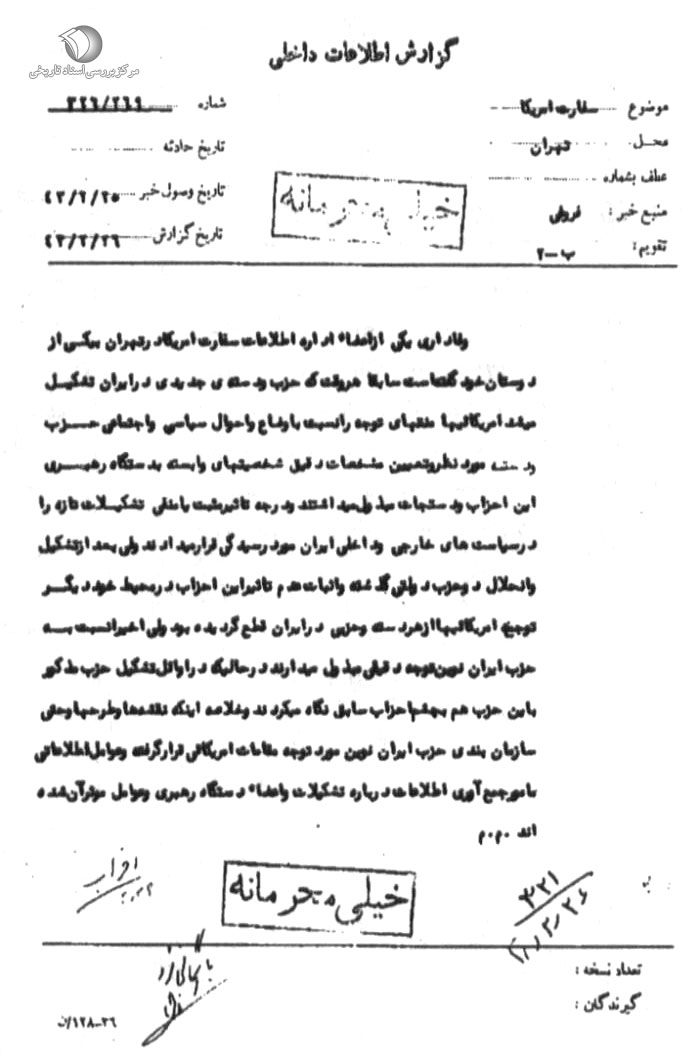 مرکز بررسی اسناد تاریخی
گزارش اطلاعات داخلی
موضوع سفارت امریکا
شماره ۳۲۶/۲۶۹
محل تهران
تاریخ حادثه
عطف بشماره
تاریخ وصول خبر ۴۳/۲/۲۵
منبع خبر :
تاریخ گزارش ۴۳/۲/۲۶
تقویم : ب-۲
خیلی محرمانه
وفاداری یکی ازاعضاء اداره اطلاعات سفارت امریکادرتهران بیکی از
دوستان خود گفته است سابقا هروقت که حزب ودسته ی جدیدی درایران تشکیل
میشد امریکائیها منتهای توجه رانسبت باوضاع واحوال سیاسی واجتماعی حزب
ودسته مورد نظروتعیین مشخصات دقیق شخصیتهای وابسته بدستگاه رهبری
این احزاب ودستجات مبذول میداشتند ودرجه تاثیرمثبت یامنفی تشکیلات تازه را
درسیاست های خارجی وداخلی ایران مورد رسیدگی قرارمیدادند ولی بعد ازتشکیل
وانحلال دوحزب دولتی گذشته واثبات عدم تاثیراین احزاب درمحیط خود دیگر
توجیه امریکائیهاازهردسته وحزبی درایران قطع گردیده بود ولی اخیرانسبت به
حزب ایران نوین توجه دقیقی مبذول میدارند درحالیکه دراوائل تشکیل حزب مذکور
باین حزب هم بچشم احزاب سابق نگاه میکردند وخلاصه اینکه نقشه هاوطرحهاوحتی
سازمان بندی حزب ایران نوین مورد توجه مقامات امریکائی قرارگرفته وعوامل اطلاعاتی
مامورجمع آوری اطلاعات درباره تشکیلات واعضاء دستگاه رهبری وعوامل موثرآن شده
اند م.م
خیلی محرمانه
احزاب
۳۲۱
۲۶
تعداد نسخه :
گیرندگان :
۱۲۸-۲۶/ن